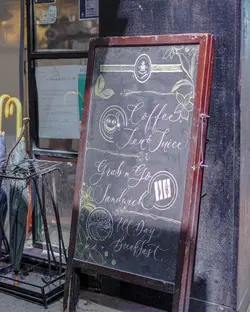 Coffee
Tea & Juice
Grab n Go
Sandwich
All Day
Breakfast